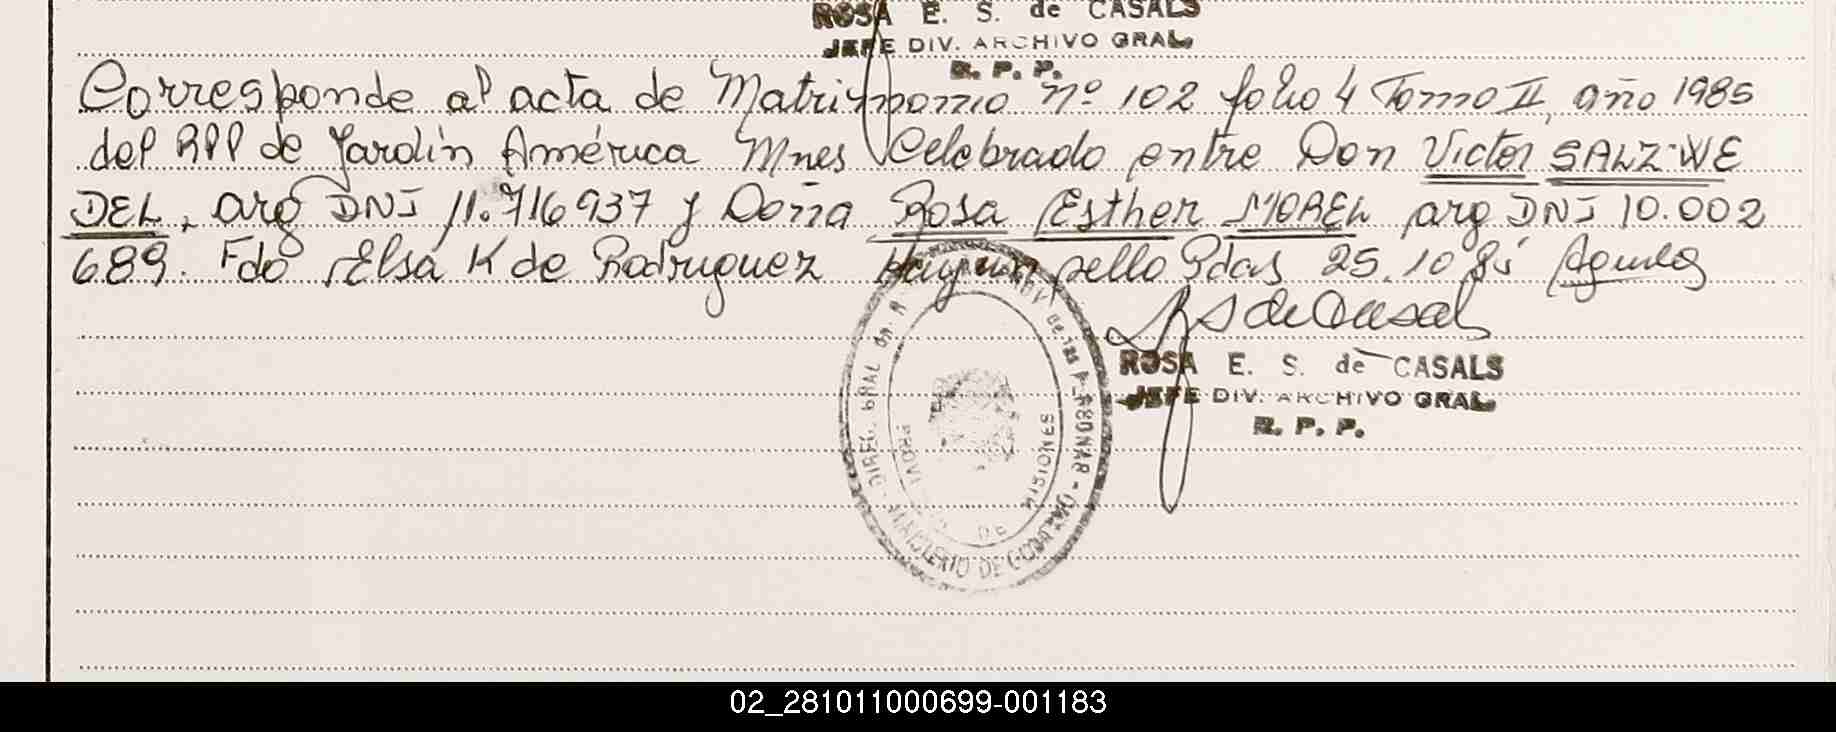 ROSA E. S. de CASALS
JEFE DIV. ARCHIVO GRAL.
R. P. P.
Corresponde al acta de Matrimonio nº 102 folio 4 Tomo II, año 1985
del RPP de Jardín América Mnes Celebrado entre Don Victor SALZ-WE
DEL, arg DNI 11.716937 y Doña Rosa Esther MOREL arg DNI 10.002
689. Fdo Elsa K de Rodriguez Hay un sello Pdas 25.10 85
RS de Casals
ROSA E. S. de CASALS
JEFE DIV. ARCHIVO GRAL.
R. P. P.
DIREC. GRAL de las PERSONAS
MINISTERIO DE
PROVINCIA DE MISIONES
02_281011000699-001183